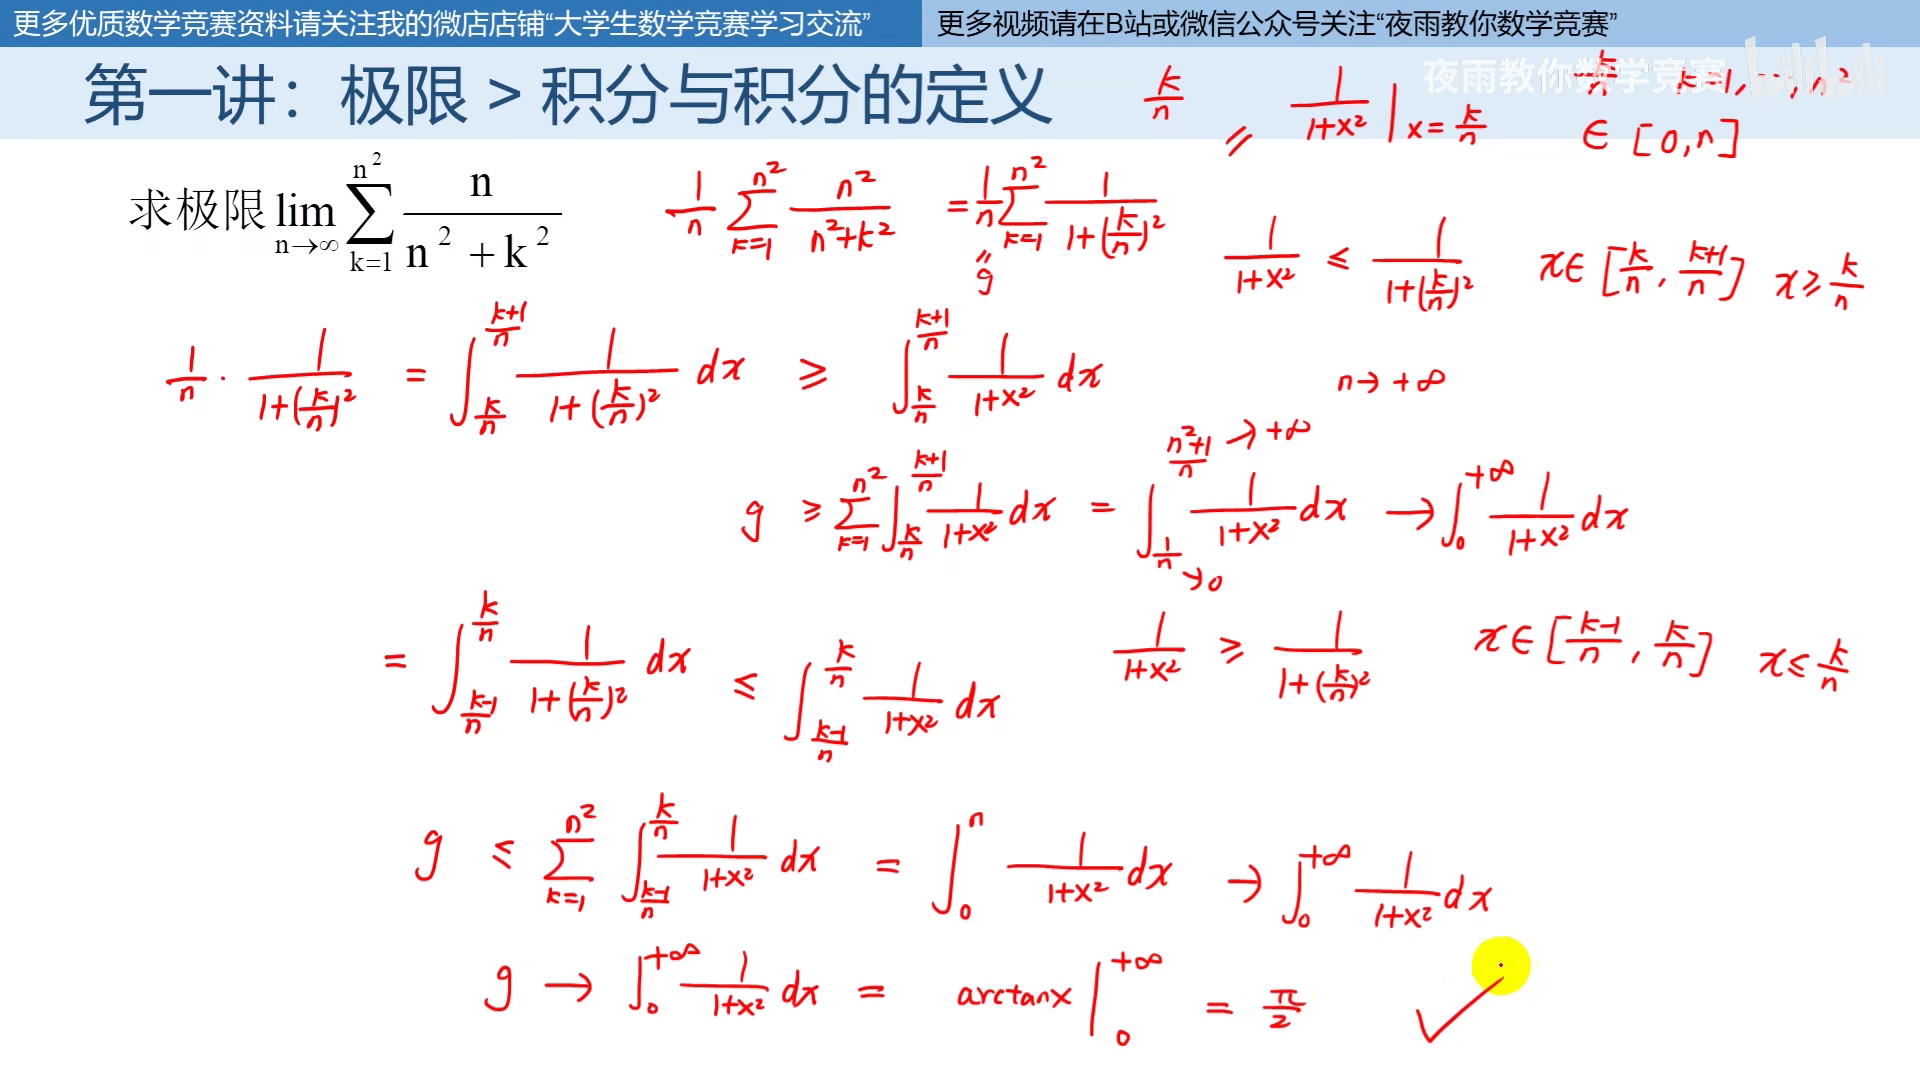 更多优质数学竞赛资料请关注我的微店店铺“大学生数学竞赛学习交流” 更多视频请在B站或微信公众号关注“夜雨教你数学竞赛”
第一讲：极限 > 积分与积分的定义
夜雨教你数学竞赛 bilibili
k/n = 1/(1+x²) | x = k/n k/n k=1,…,n² ∈ [0,n]
求极限 lim n→∞ ∑ k=1 n² n/(n²+k²)
1/n ∑ k=1 n² n²/(n²+k²) = 1/n ∑ k=1 n² 1/(1+(k/n)²) = g
1/(1+x²) ≤ 1/(1+(k/n)²) x∈[k/n, (k+1)/n] x≥k/n
1/n · 1/(1+(k/n)²) = ∫ k/n (k+1)/n 1/(1+(k/n)²) dx ≥ ∫ k/n (k+1)/n 1/(1+x²) dx n→+∞
g ≥ ∑ k=1 n² ∫ k/n (k+1)/n 1/(1+x²) dx = ∫ 1/n→0 (n²+1)/n→+∞ 1/(1+x²) dx → ∫ 0 +∞ 1/(1+x²) dx
= ∫ (k-1)/n k/n 1/(1+(k/n)²) dx ≤ ∫ (k-1)/n k/n 1/(1+x²) dx 1/(1+x²) ≥ 1/(1+(k/n)²) x∈[(k-1)/n, k/n] x≤k/n
g ≤ ∑ k=1 n² ∫ (k-1)/n k/n 1/(1+x²) dx = ∫ 0 n 1/(1+x²) dx → ∫ 0 +∞ 1/(1+x²) dx
g → ∫ 0 +∞ 1/(1+x²) dx = arctanx | 0 +∞ = π/2 ✓